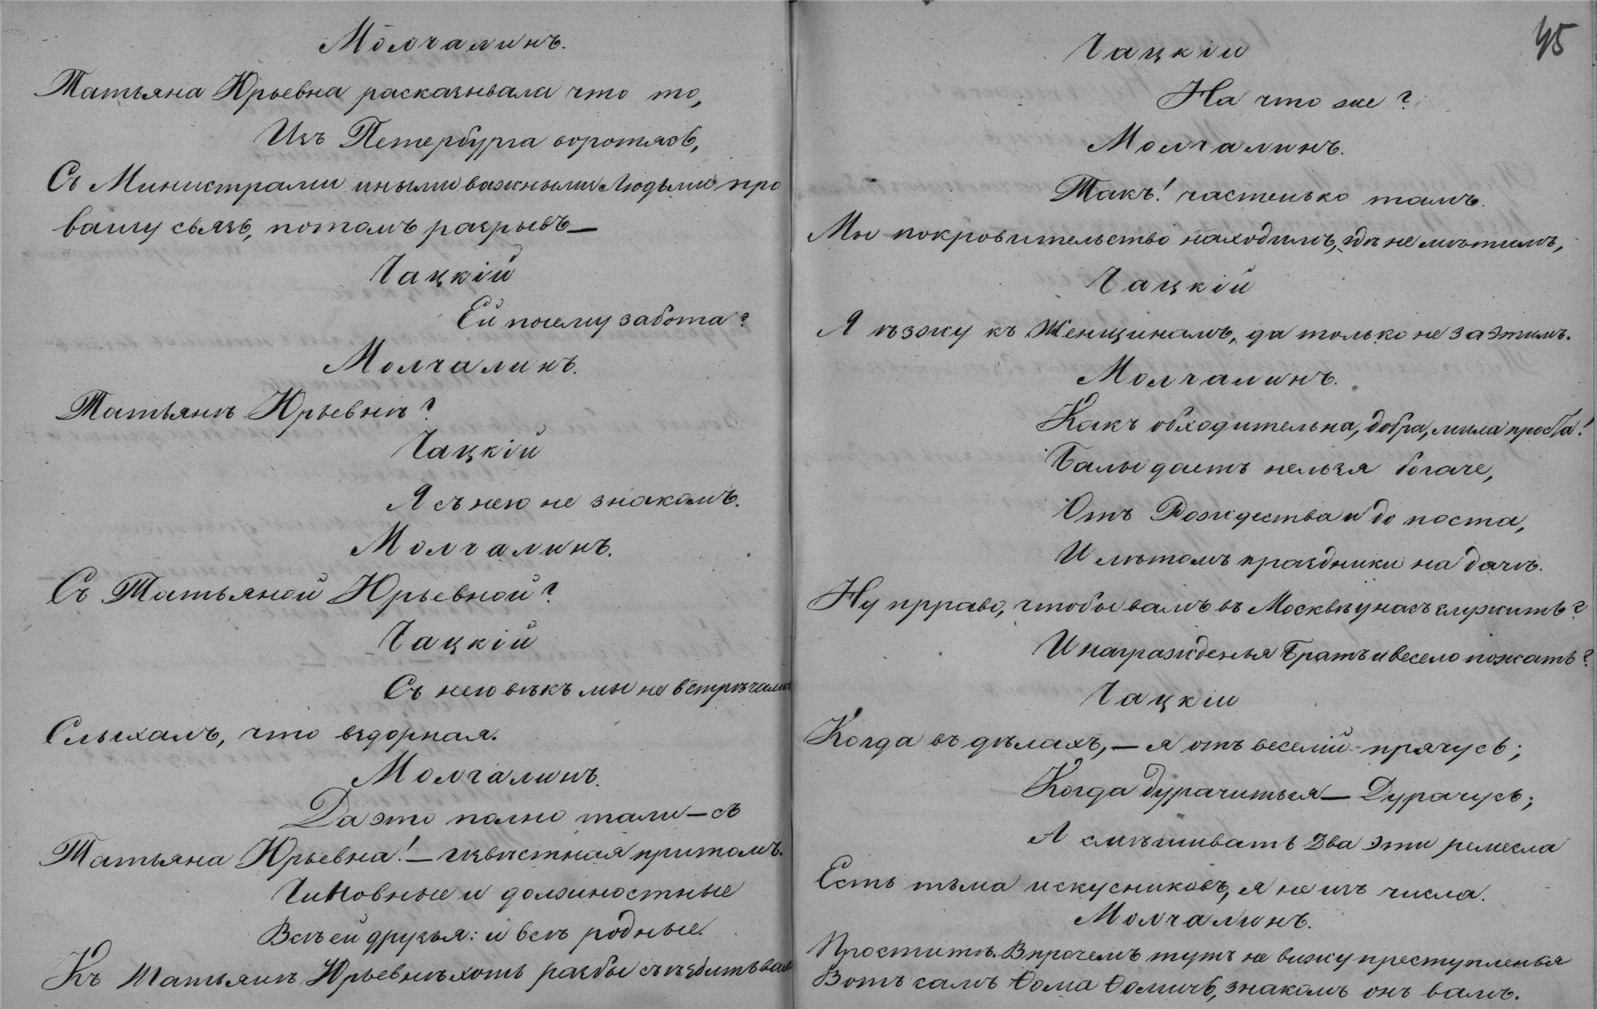 Молчалинъ.
Татьяна Юрьевна расказывала что то,
Изъ Петербурга воротясь,
Съ Министрами иными важными Людьми про
вашу связь, потомъ разрывъ—
Чацкій
Ей почему забота?
Молчалинъ.
Татьянѣ Юрьевнѣ?
Чацкій
Я съ нею не знакомъ.
Молчалинъ.
Съ Татьяной Юрьевной?
Чацкій
Съ нею вѣкъ мы не встрѣчались
Слыхалъ, что вздорная.
Молчалинъ.
Да это полно тали—съ
Татьяна Юрьевна!—извѣстная притомъ.
Чиновные и должностные
Всѣ ей друзья: и всѣ родные.
Къ Татьянѣ Юрьевнѣ хоть разбы съѣздить вамъ
45
Чацкіи
На что же?
Молчалинъ.
Такъ! частенько тамъ.
Мы покровительство находимъ, гдѣ не мѣтимъ,
Чацкій
Я ѣзжу къ Женщинамъ, да только не за этимъ.
Молчалинъ.
Какъ обходительна, добра, мила проста!
Балы даетъ нельзя богаче,
Отъ Рождества и до поста,
И лѣтомъ праздники на дачѣ.
Ну прраво, чтобы вамъ въ Москвѣ у насъ служить?
И награжденья Брать и весело пожать?
Чацкіи
Когда въ дѣлахъ,—я отъ веселій прячусь;
Когда дурачиться—Дурачусь;
А смѣшивать два эти ремесла
Есть тьма искусниковъ, я не изъ числа.
Молчалинъ.
Простите. Впрочемъ тутъ не вижу преступленья
Вотъ самъ Ѳома Ѳомичь, знакомъ онъ вамъ.